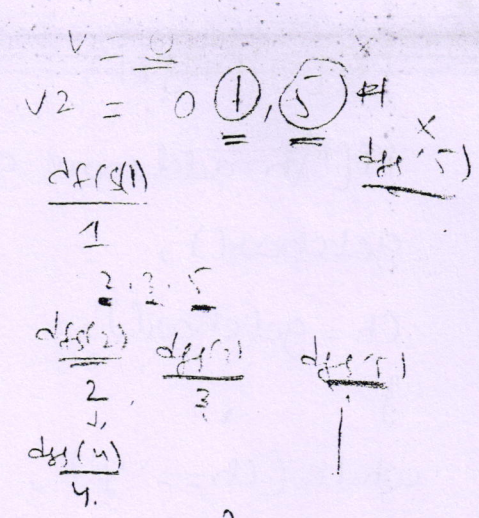 V = 0 x
V2 = 0 1, 5
x
dfs(1) dfs(5)
1
2, 3, 5
dfs(2) dfs(3) dfs(5)
2 3
dfs(4)
4.